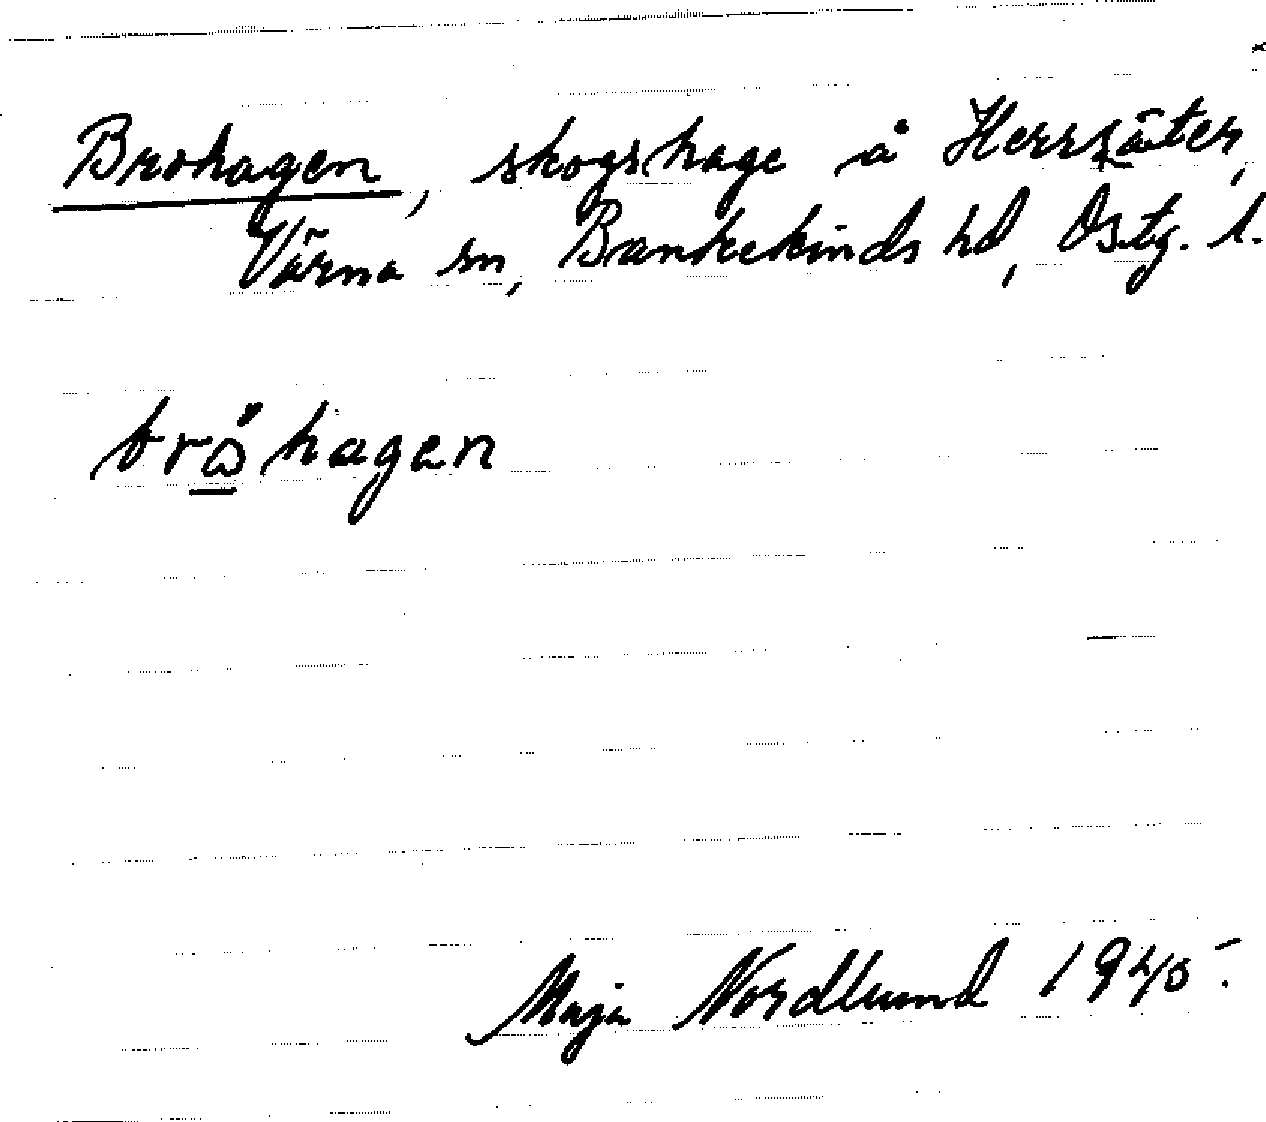 Brohagen, skogshage å Herrsäter,
Värna sn, Bankekinds hd, Östg. l.
bråhagen
Maja Nordlund 1945.